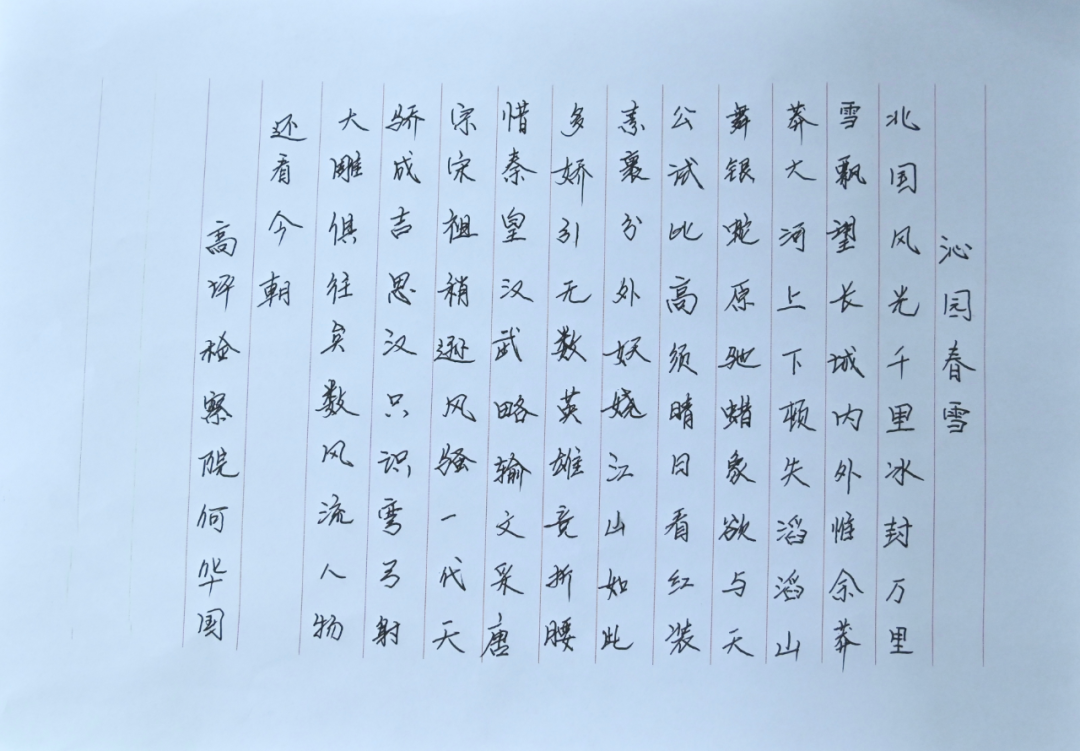 沁园春雪
北国风光千里冰封万里
雪飘望长城内外惟余莽
莽大河上下顿失滔滔山
舞银蛇原驰蜡象欲与天
公试比高须晴日看红装
素裹分外妖娆江山如此
多娇引无数英雄竞折腰
惜秦皇汉武略输文采唐
宗宋祖稍逊风骚一代天
骄成吉思汉只识弯弓射
大雕俱往矣数风流人物
还看今朝
高坪检察院何华国